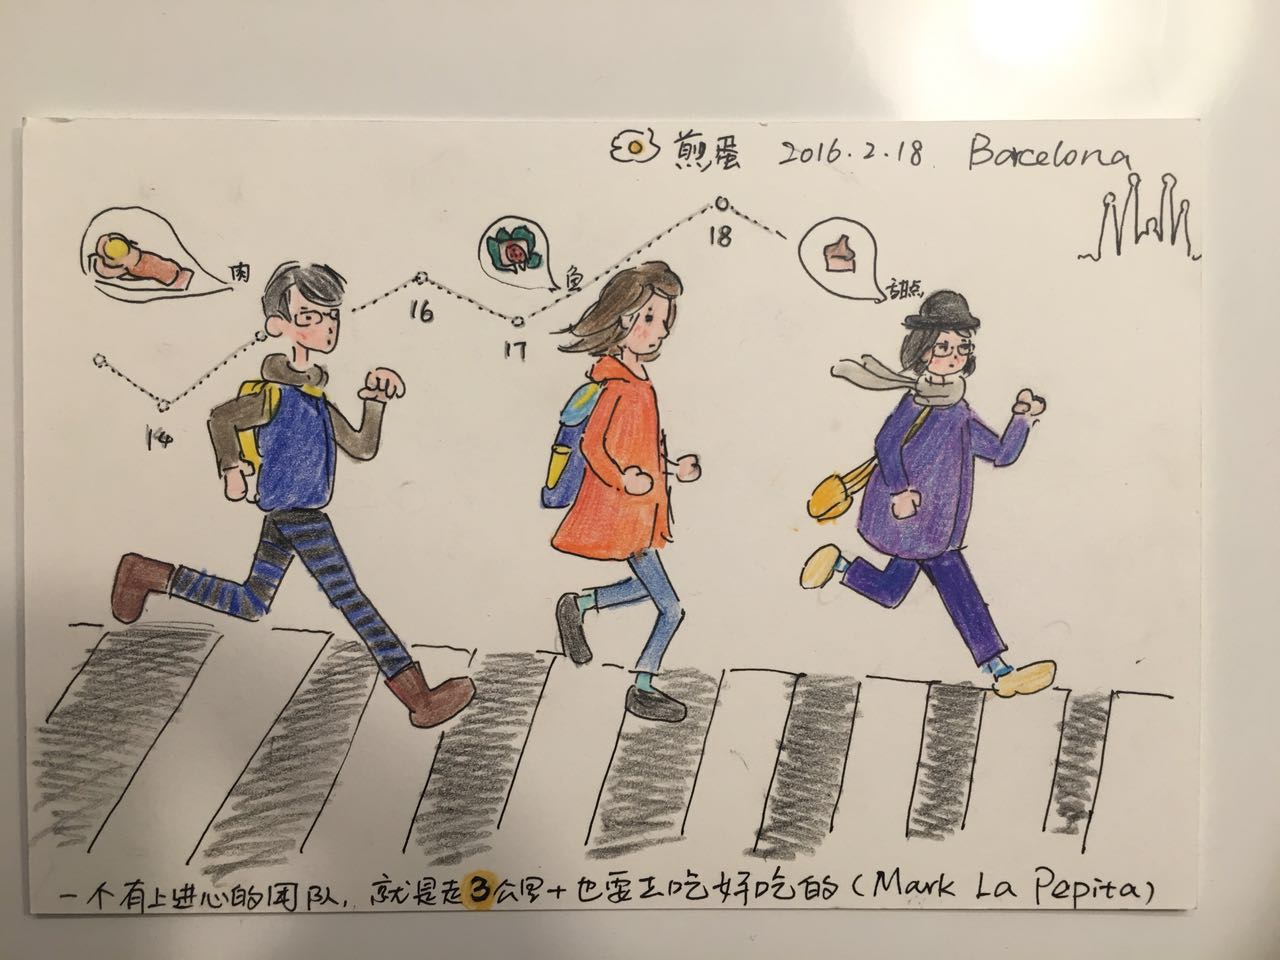 煎蛋 2016.2.18 Barcelona
18
肉
16
鱼
甜点
17
14
一个有上进心的团队,就是走3公里+也要去吃好吃的(Mark La Pepita)